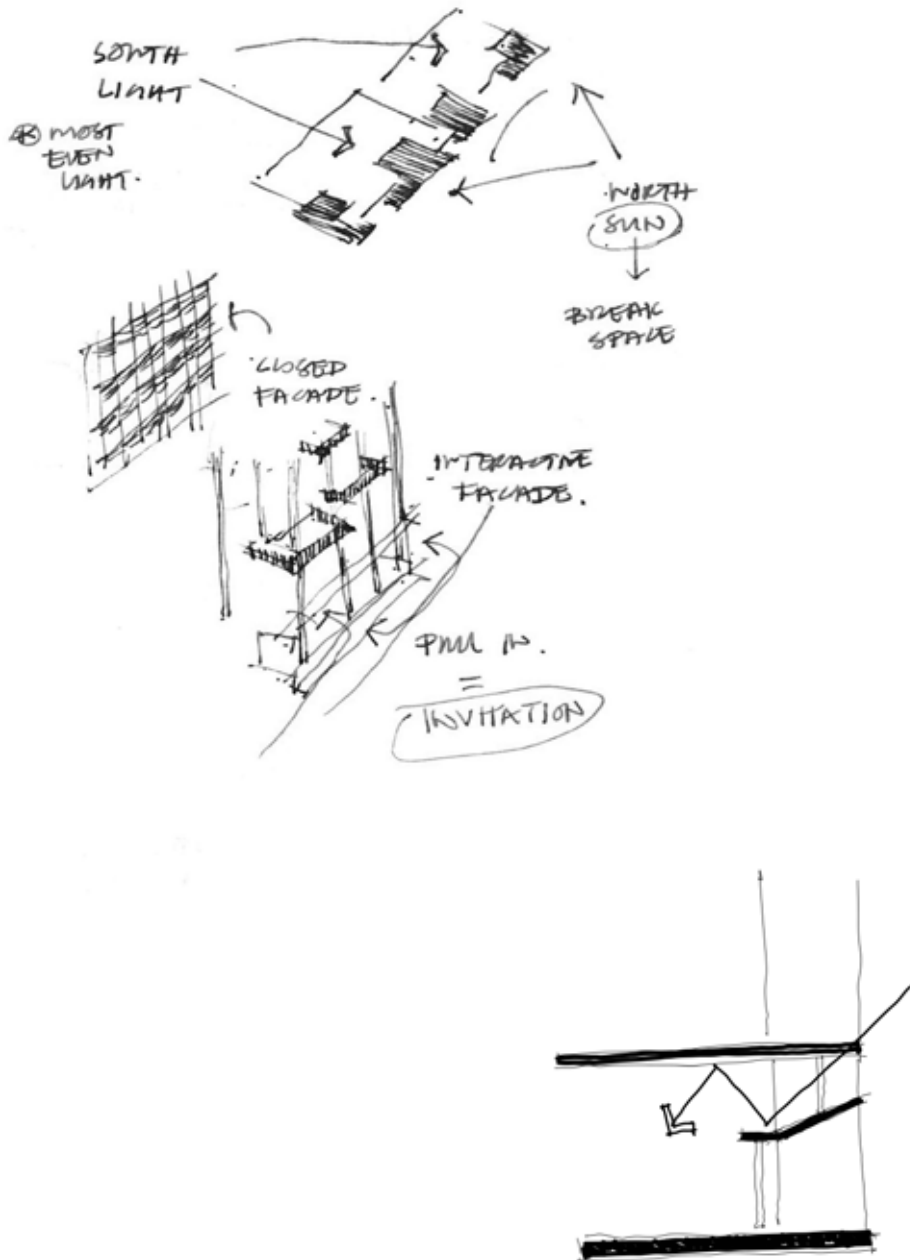 SOUTH
LIGHT
* MOST
EVEN
LIGHT.
NORTH
SUN
BREAK
SPACE
CLOSED
FACADE.
INTERACTIVE
FACADE.
PULL IN.
=
INVITATION